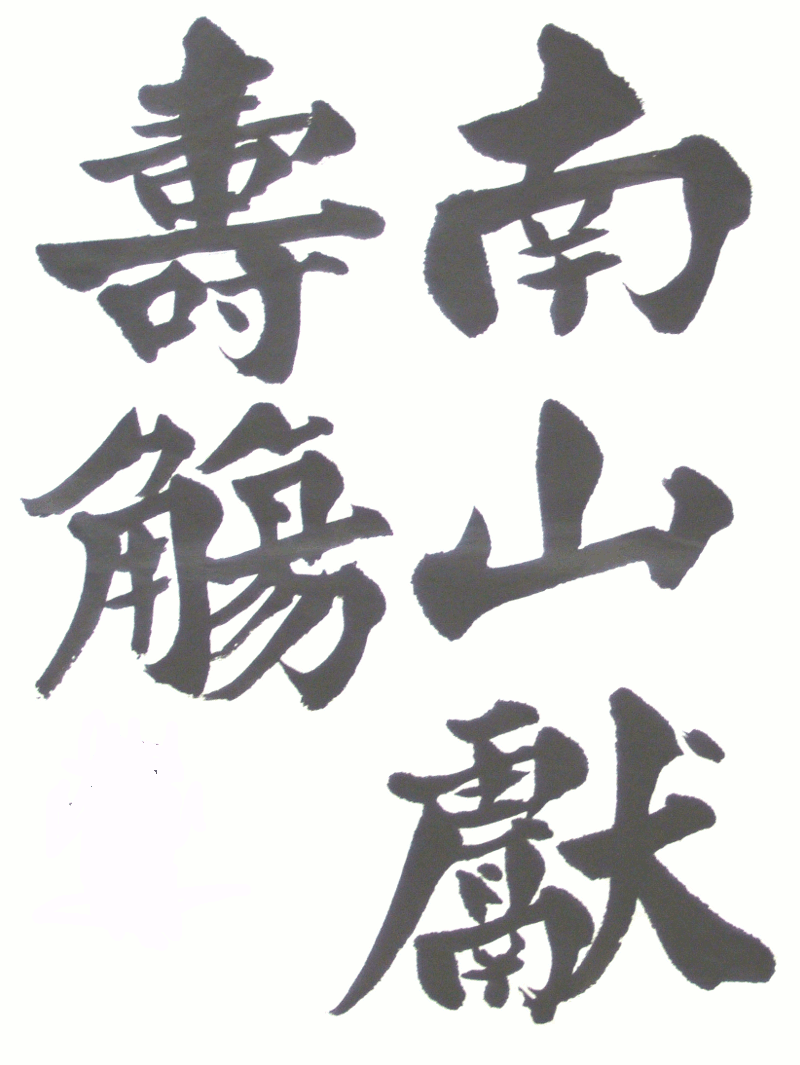 南山獻
壽觴